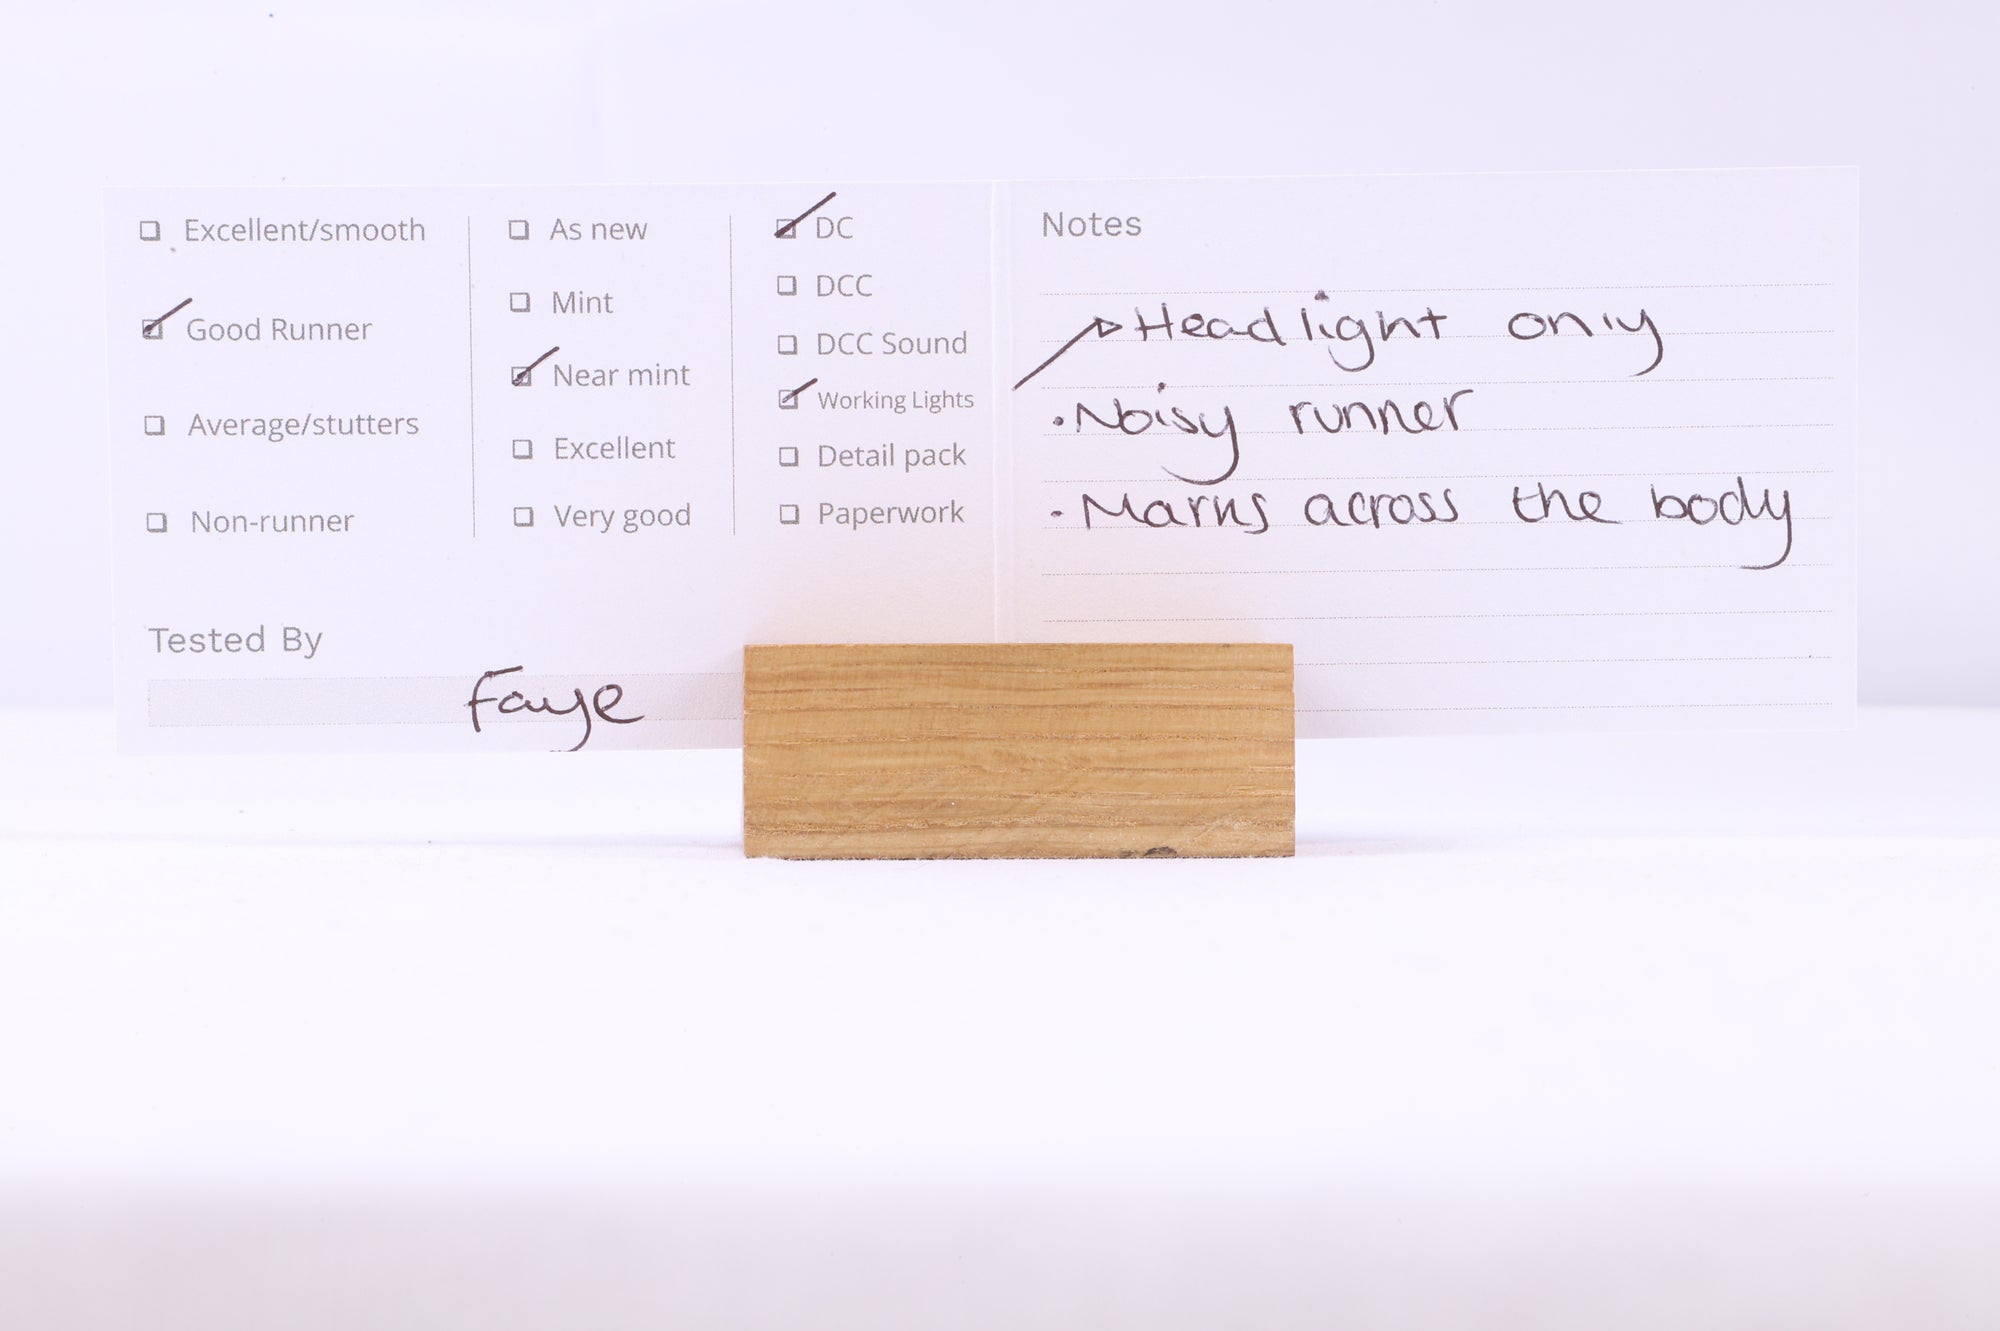 Excellent/smooth
Good Runner
Average/stutters
Non-runner
As new
Mint
Near mint
Excellent
Very good
DC
DCC
DCC Sound
Working Lights
Detail pack
Paperwork
Tested By
Faye
Notes
Headlight only
• Noisy runner
- Marks across the body